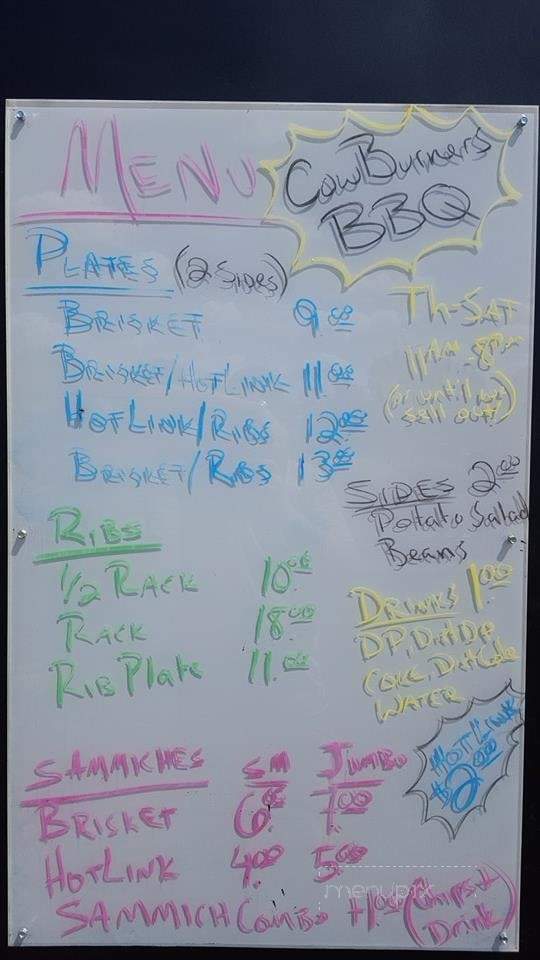 MENU
CowBurners
BBQ
PLATES (2 Sides)
BRISKET 9.00
BRISKET/HOTLINK 11.00
HOTLINK/RIBS 12.00
BRISKET/RIBS 13.00
TH-SAT
11AM-8PM
(or until we
sell out!)
SIDES 2.00
Potato Salad
Beans
RIBS
1/2 RACK 10.00
RACK 18.00
RIB Plate 11.00
DRINKS 1.00
DP, Diet DP
Coke, Diet Coke
WATER
HOTLINK
$2.00
SAMMICHES SM JUMBO
BRISKET 6.00 7.00
HOTLINK 4.00 5.00
SAMMICH Combo +1.00 (Chips +
Drink)
menupix